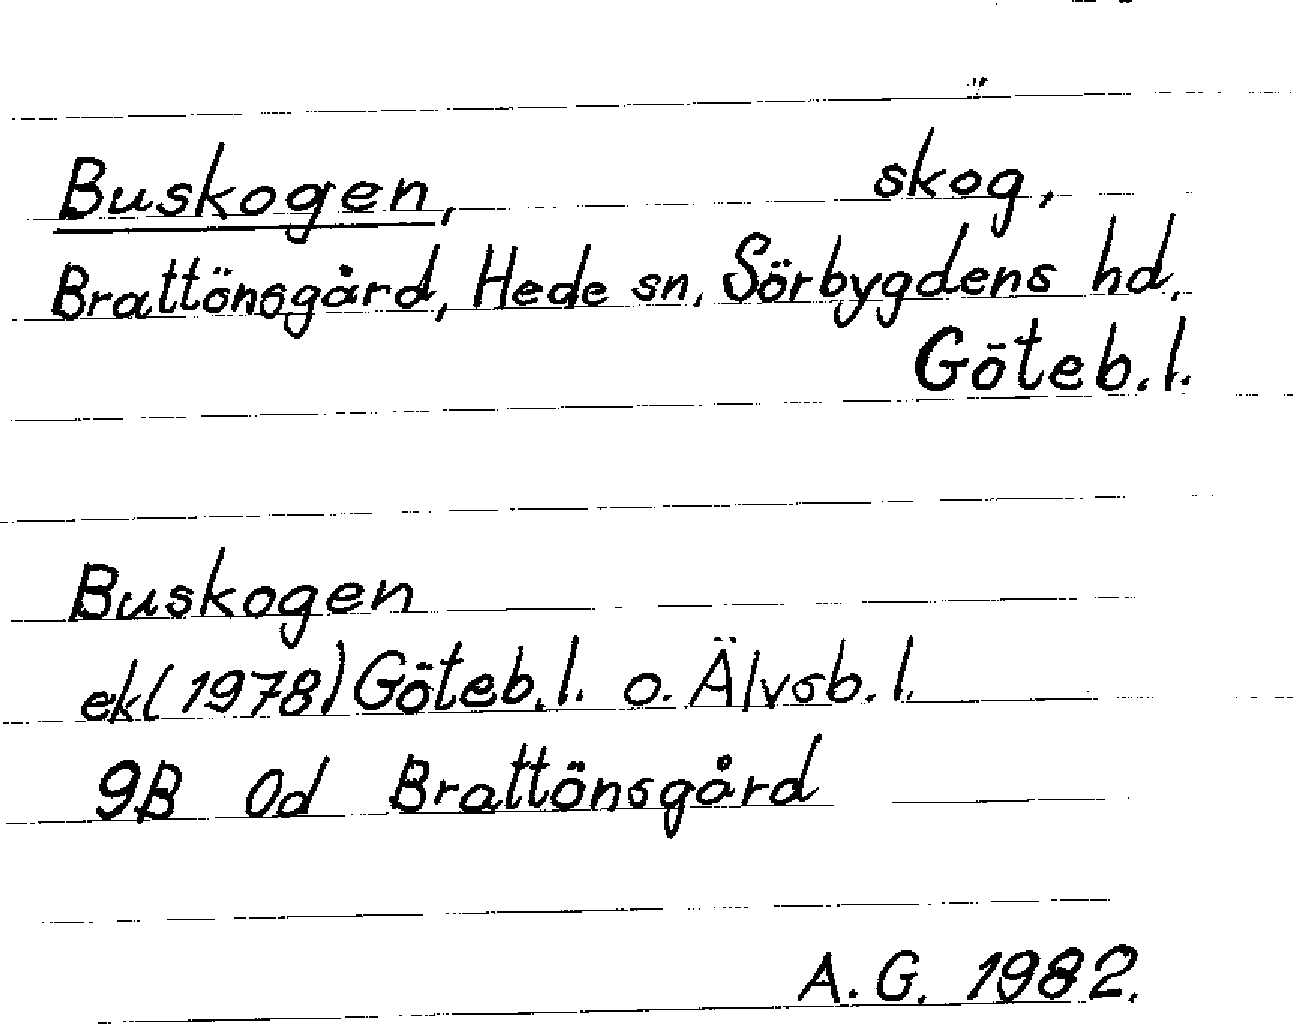 Buskogen, skog,
Brattönsgård, Hede sn, Sörbygdens hd,
Göteb.l.
Buskogen
ekl(1978) Göteb.l. o. Älvsb.l.
9B 0d Brattönsgård
A.G. 1982.